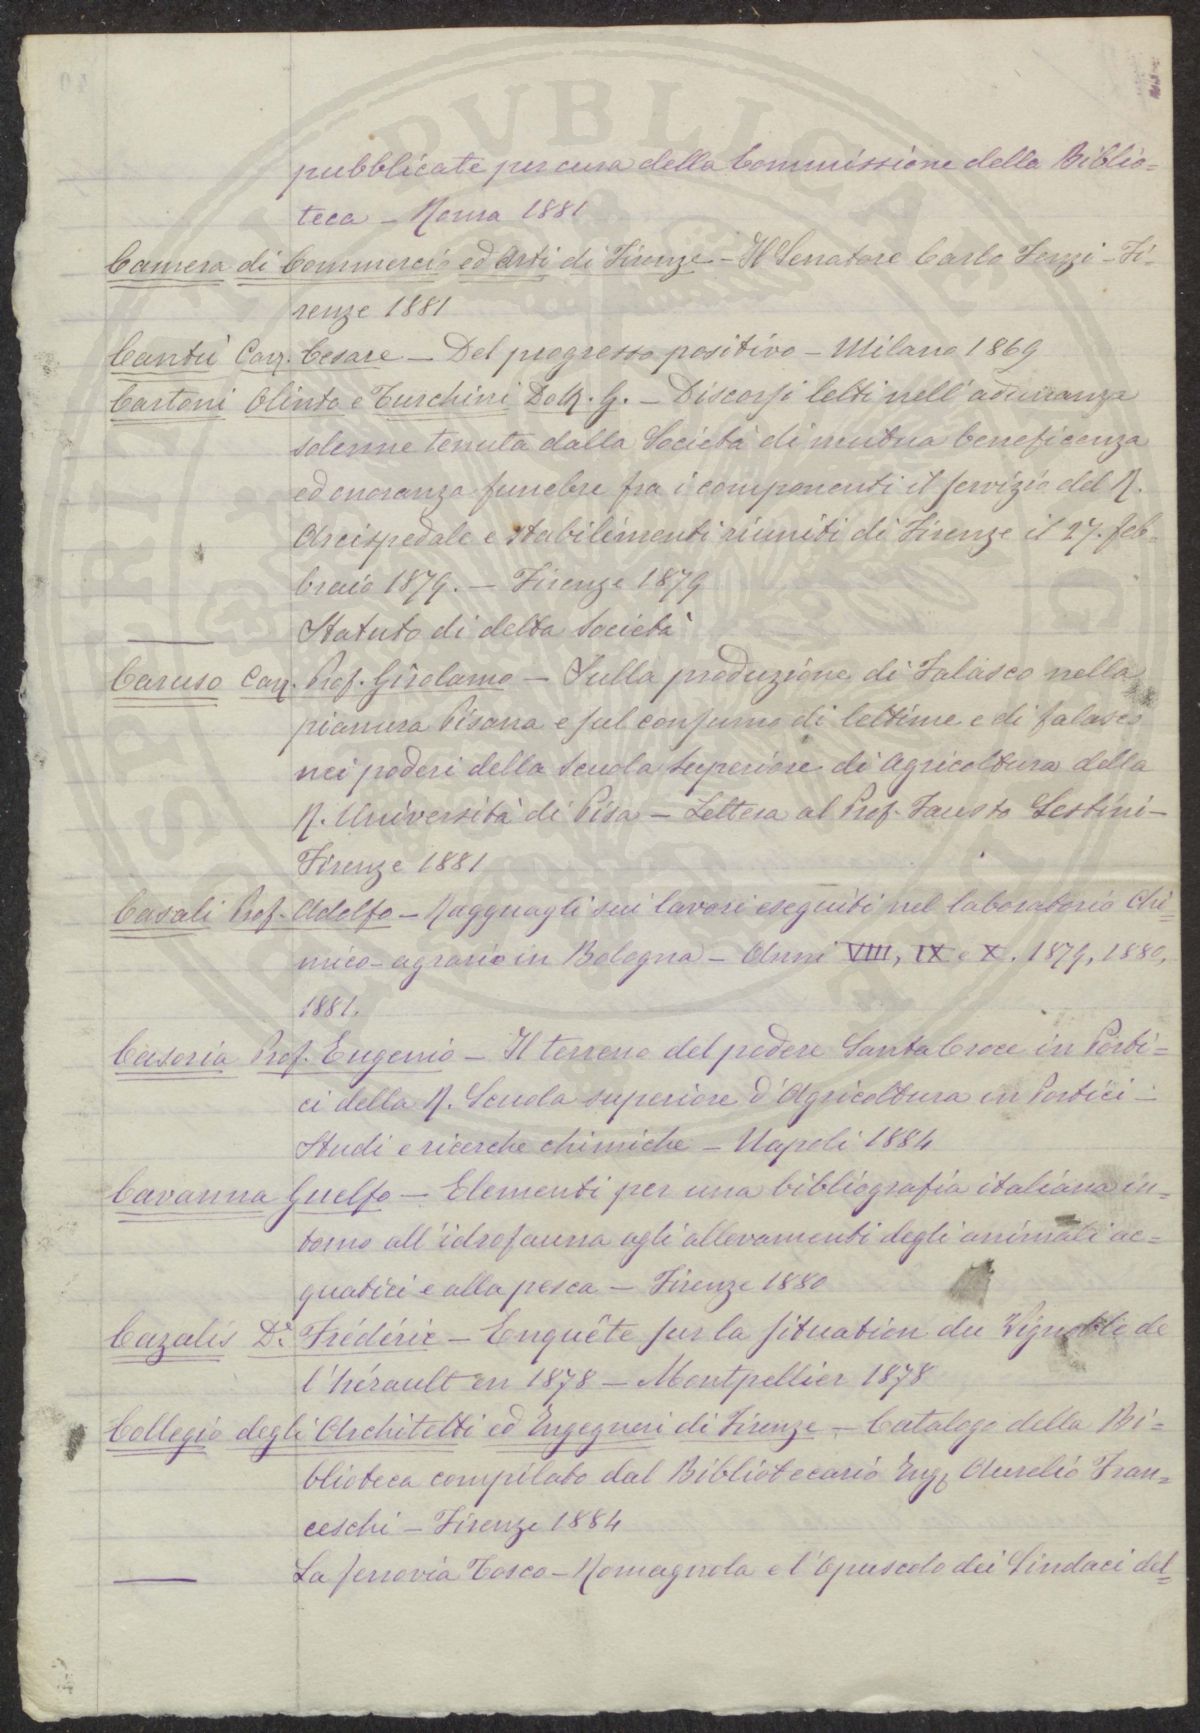 pubblicate per cura della Commissione della Biblio=
teca – Roma 1881
Camera di Commercio ed Arti di Firenze – Il Senatore Carlo Fenzi – Fi-
renze 1881
Cantù Cav. Cesare – Del progresso positivo – Milano 1869
Cartoni Olinto e Turchini Dott. G. – Discorsi letti nell'adunanza
solenne tenuta dalla Società di mutua beneficenza
ed onoranza funebre fra i componenti il servizio del R.
Arcispedale e stabilimenti riuniti di Firenze il 27. feb-
braio 1879. – Firenze 1879
——— Statuto di detta Società
Caruso Cav. Prof. Girolamo – Sulla produzione di Falasco nella
pianura Pisana e sul consumo di lettime e di falasco
nei poderi della Scuola Superiore di Agricoltura della
R. Università di Pisa – Lettera al Prof. Fausto Sestini –
Firenze 1881
Casali Prof. Adolfo – Ragguagli sui lavori eseguiti nel laboratorio Chi=
mico-agrario in Bologna – Anni VIII, IX e X. 1879, 1880,
1881.
Casoria Prof. Eugenio – Il terreno del podere Santa Croce in Porti=
ci della R. Scuola superiore d'Agricoltura in Portici –
Studi e ricerche chimiche – Napoli 1884
Cavanna Guelfo – Elementi per una bibliografia italiana in=
torno all'idrofauna agli allevamenti degli animali ac=
quatici e alla pesca – Firenze 1880
Cazalis Dr. Frédéric – Enquête sur la situation du Vignoble de
l'hérault en 1878 – Montpellier 1878
Collegio degli Architetti ed Ingegneri di Firenze – Catalogo della Bi=
blioteca compilato dal Bibliotecario Ing. Aurelio Fran=
ceschi – Firenze 1884
——— La ferrovia Tosco-Romagnola e l'Opuscolo dei Sindaci del=